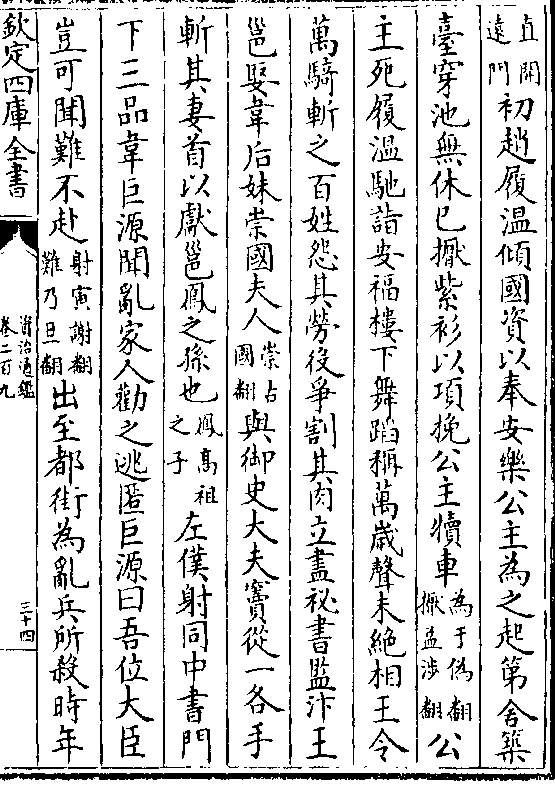 直開遠門初趙履溫傾國資以奉安樂公主為之起第舍築
臺穿池無休已擫紫衫以項挽公主犢車為于偽翻擫益涉翻公
主死履溫馳詣安福樓下舞蹈稱萬歲聲未絶相王令
萬騎斬之百姓怨其勞役爭割其肉立盡祕書監汴王
邕娶韋后妹崇國夫人崇占國翻與御史大夫竇從一各手
斬其妻首以獻邕鳳之孫也鳳高祖之子左僕射同中書門
下三品韋巨源聞亂家人勸之逃匿巨源曰吾位大臣
豈可聞難不赴射寅謝翻難乃旦翻出至都街為亂兵所殺時年
欽定四庫全書
資治通鑑
卷二百九
三十四